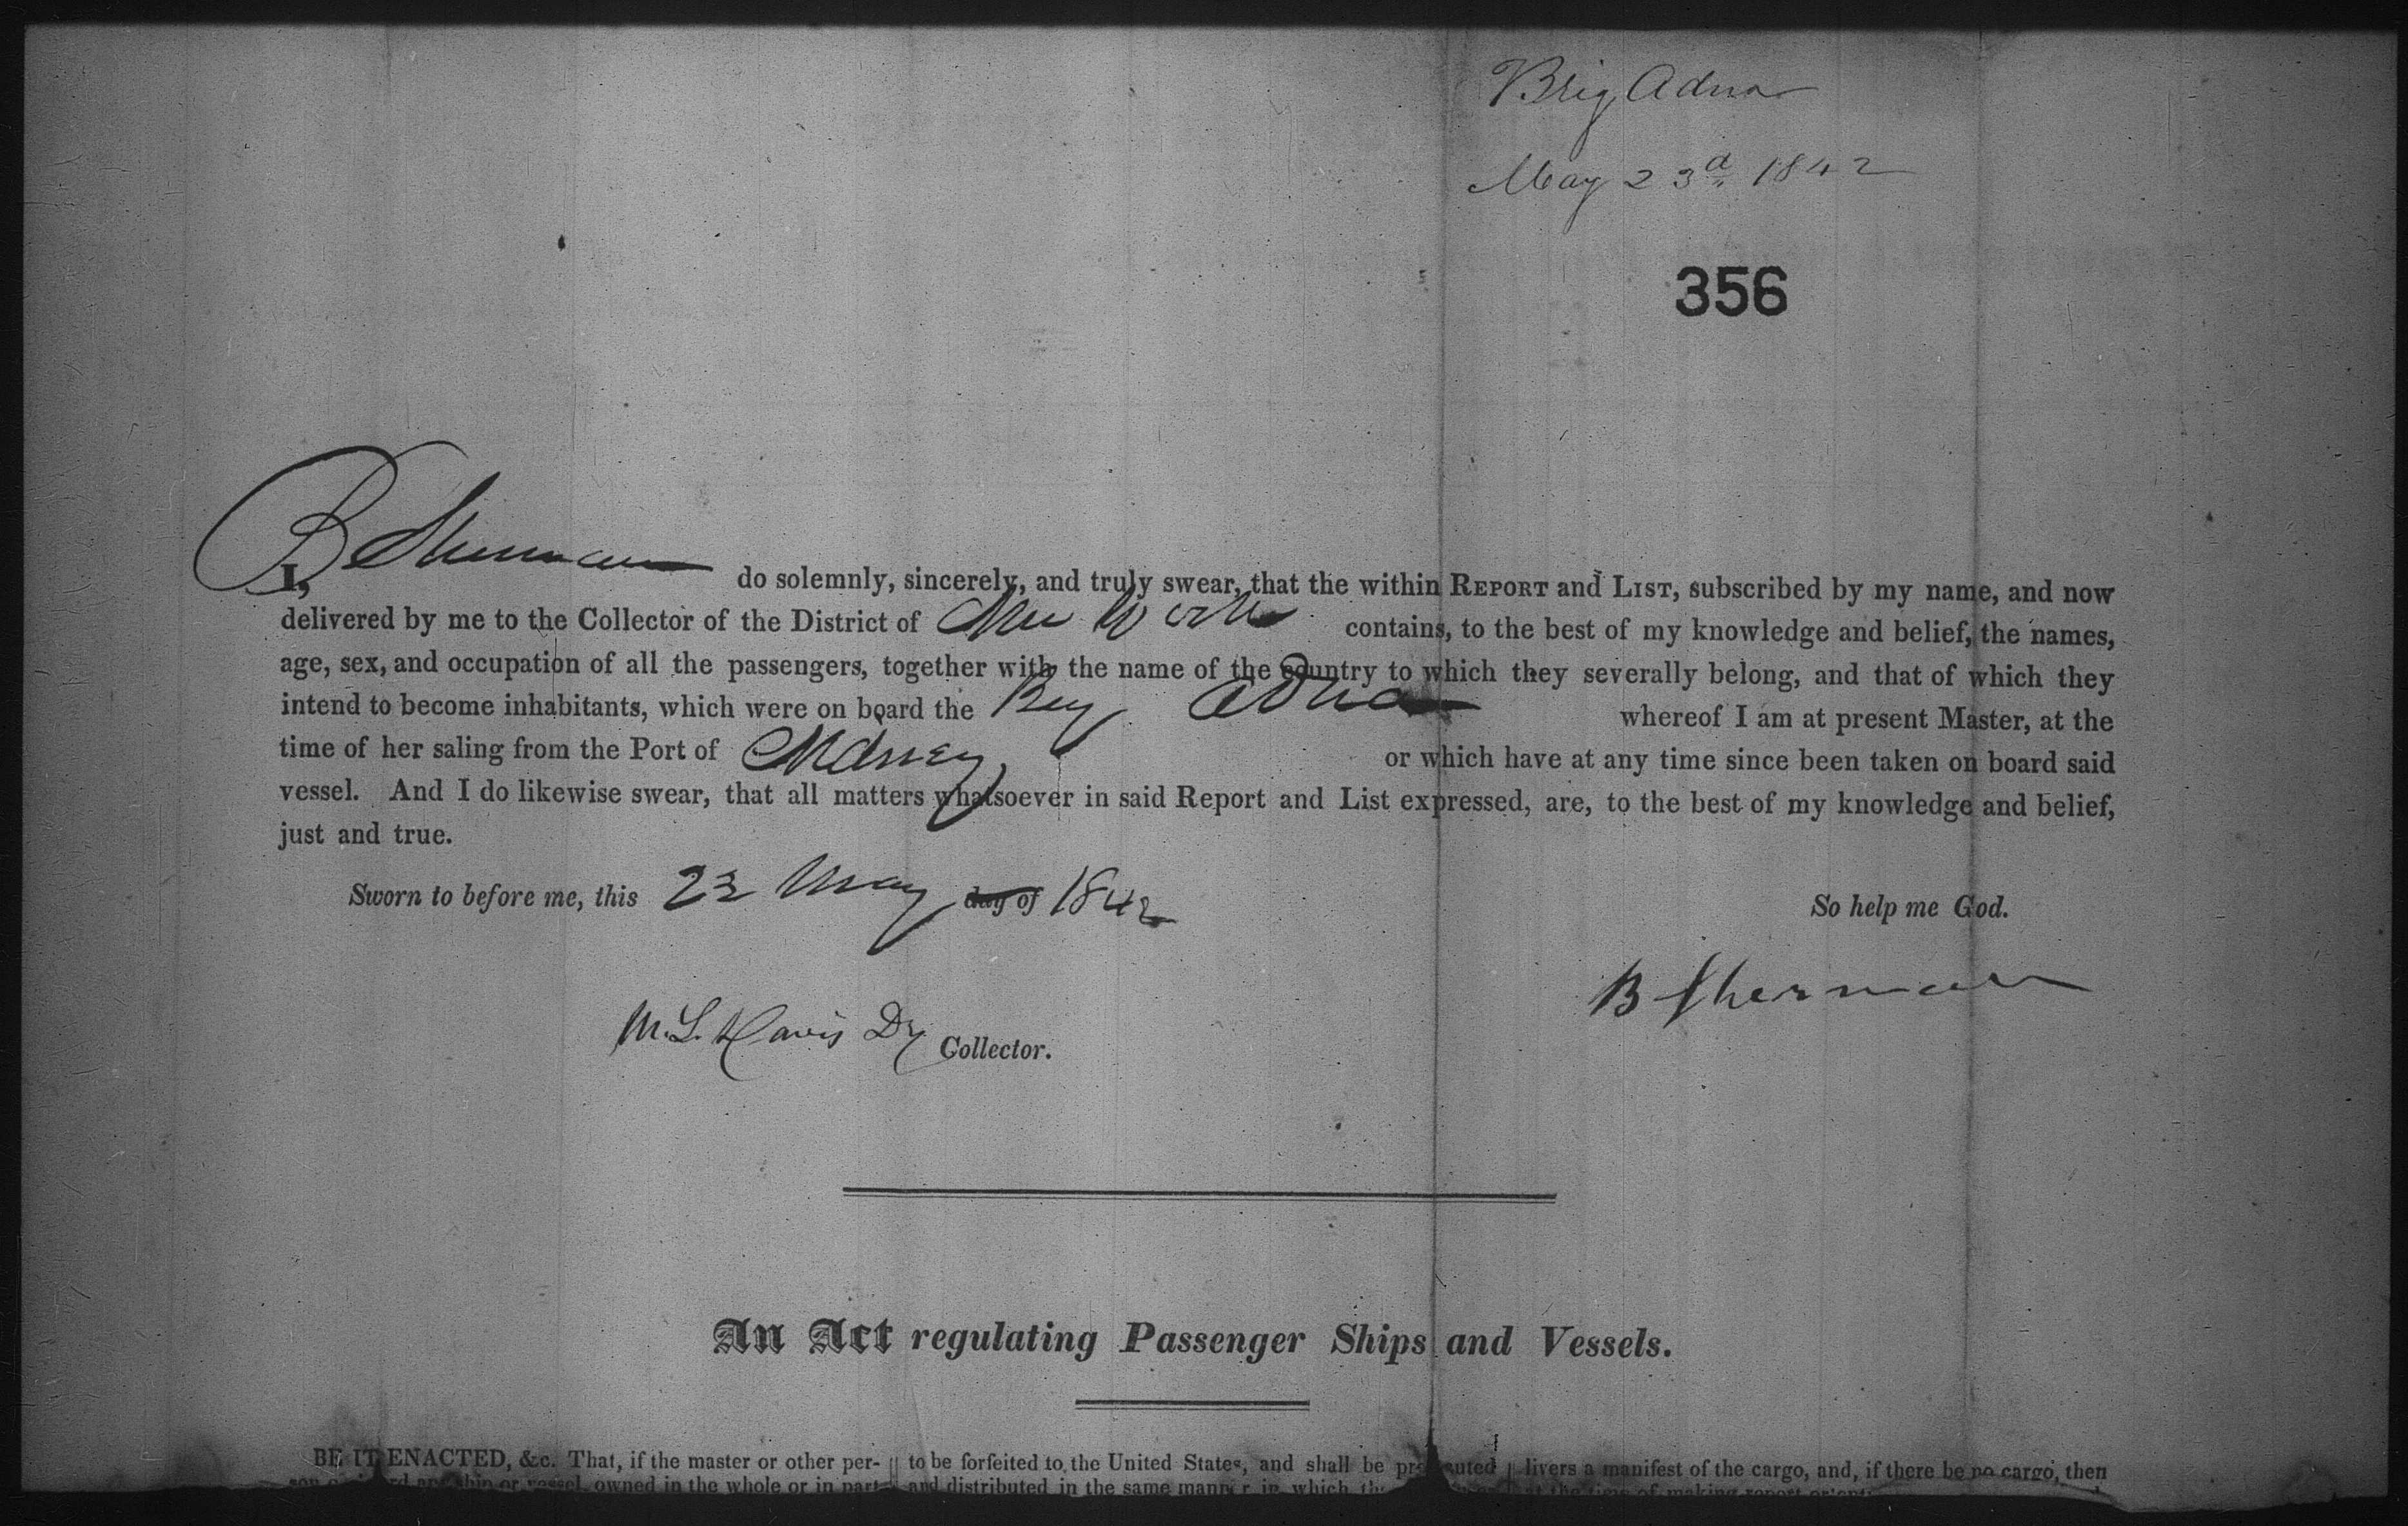 Brig Adna
May 23d 1842
356
I, B Sherman do solemnly, sincerely, and truly swear, that the within REPORT and LIST, subscribed by my name, and now
delivered by me to the Collector of the District of New York contains, to the best of my knowledge and belief, the names,
age, sex, and occupation of all the passengers, together with the name of the country to which they severally belong, and that of which they
intend to become inhabitants, which were on board the Brig Adna whereof I am at present Master, at the
time of her saling from the Port of or which have at any time since been taken on board said
vessel. And I do likewise swear, that all matters whatsoever in said Report and List expressed, are, to the best of my knowledge and belief,
just and true.
Sworn to before me, this 23 May day of 1842 So help me God.
B Sherman
M. L. Davis Dy Collector.
An Act regulating Passenger Ships and Vessels.
BE IT ENACTED, &c. That, if the master or other per- to be forfeited to the United States, and shall be livers a manifest of the cargo, and, if there be no cargo, then
ship or vessel, owned in the whole or in part and distributed in the same manner in which at the time of making report or